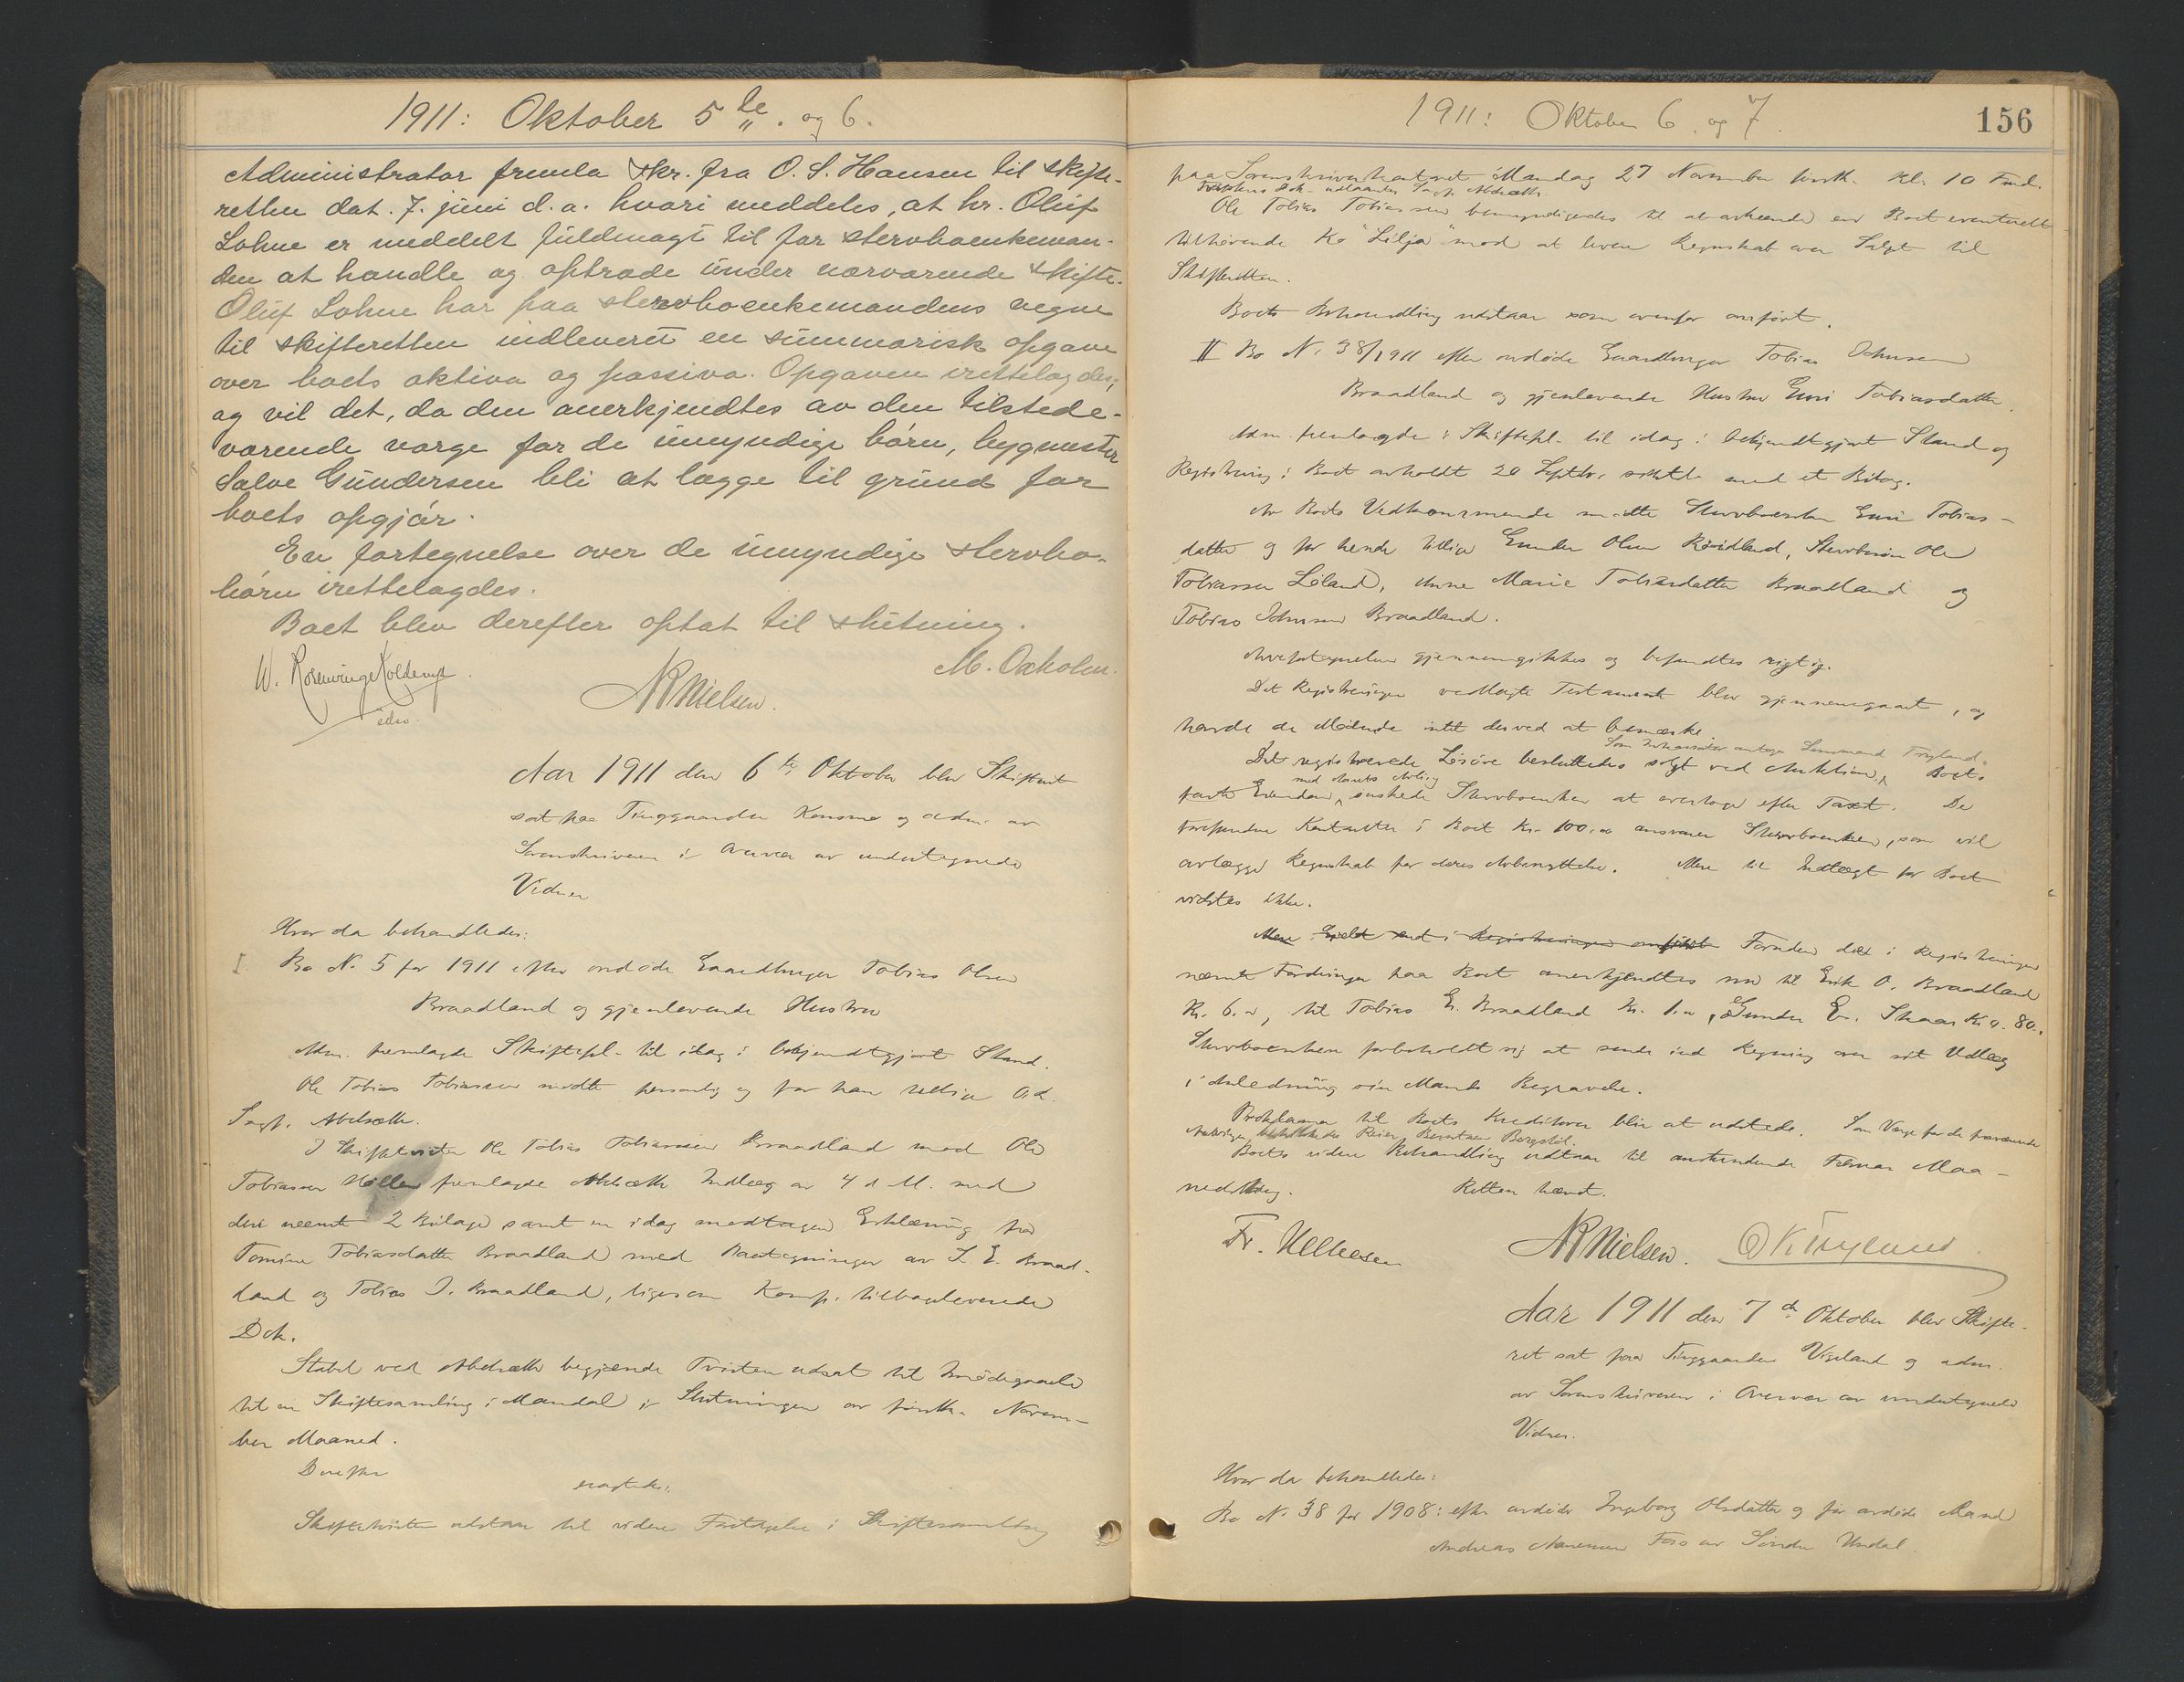 1911: Oktober 5te og 6.
Administrator fremla skr. fra O. S. Hansen til skifte-
retten dat. 7. juni d. a. hvori meddeles, at hr. Oluf
Lohne er meddelt fuldmagt til for stervboenkeman-
den at handle og optræde under nærværende skifte.
Oluf Lohne har paa stervboenkemandens vegne
til skifteretten indleveret en summarisk opgave
over boets aktiva og passiva. Opgaven irettelagdes,
og vil det, da den anerkjendtes av den tilstede-
værende værge for de umyndige børn, bygmester
Salve Gundersen bli at lægge til grund for
boets opgjør.
En fortegnelse over de umyndige stervbo-
børn irettelagdes.
Boet blev derefter optat til slutning.
W. Rosenvinge Kolderup
edsv.
N R Nielsen.
M. Oxholm.
Aar 1911 den 6te Oktober blev Skifteret
sat paa Tinggaarden Konsmo og adm. av
Sorenskriveren i Overvær av undertegnede
Vidner
Hvor da behandledes:
I. Bo N. 5 for 1911 efter avdøde Gaardbruger Tobias Olsen
Braadland og gjenlevende Hustru
Adm. fremlagde Skiftepl. til idag i bekjendtgjort Stand.
Ole Tobias Tobiassen mødte personlig og for ham tillige O.r.
Sagf. Abelsæth.
I Skiftetvisten Ole Tobias Tobiassen Braadland mod Ole
Tobiassen fremlagde Abelsæth Indlæg av 4 d. M. med
deri nævnte 2 Bilage samt en idag modtagen Erklæring fra
Tomine Tobiasdatter Braadland med Paategninger av L. E. Braad-
land og Tobias J. Braadland, ligesom Komp. tilbageleverede
Dok.
Stabel ved Abelsæth begjærede Tvisten udsat til Imødegaaelse
til en Skiftesamling i Mandal i Slutningen av førstk. Novem-
ber Maaned.
Derefter
eragtedes:
Skiftetvisten utstaar til videre Foretagelse i Skiftesamling
1911: Oktober 6. og 7.
156
paa Sorenskriverkontoret Mandag 27 November førstk. Kl. 10 Fmd.
Tvistens Dok. utlaantes Sagf. Abelsæth.
Ole Tobias Tobiassen bemyndigedes til at avhænde en Boet eventuelt
tilhørende Ko "Lilja" mod at levere Regnskab over Salget til
Skifteretten.
Boets Behandling utstaar som ovenfor anført.
II Bo N. 38/1911 efter avdøde Gaardbruger Tobias Johnsen
Braadland og gjenlevende Hustru Guri Tobiasdatter.
Adm. fremlagde Skiftepl. til idag i bekjendtgjort Stand og
Registrering i Boet avholdt 20 Septbr. sidstl. med et Bilag.
Av Boets Vedkommende mødte Stervboenken Guri Tobias-
datter og for hende tillige Gunder Olsen Røidland, Stervbosøn Ole
Tobiassen Løland, Anne Marie Tobiasdatter Braadland og
Tobias Johnsen Braadland.
Arvefortegnelsen gjennemgikkes og befandtes rigtig.
Det Registreringen vedlagte Testamente blev gjennemgaaet, og
havde de Mødende intet derved at bemærke.
Som Inkassator antages Lensmand Tryland.
Det registrerede Løsøre besluttedes solgt ved Auktion, Boets
med Aarets Avling
faste Eiendom ønskede Stervboenken at overtage efter Taxt. De
forefundne Kontanter i Boet Kr. 100.00 ansvarer Stervboenken, som vil
avlægge Regnskab for deres Avbenyttelse. Mere til Indtægt for Boet
vidstes ikke.
Mere Gjæld end i Registreringen anført Foruden de i Registreringen
nævnte Fordringer paa Boet anerkjendtes nu til Erik O. Braadland
Kr. 6.00, til Tobias E. Braadland Kr. 1.00, Gunder E. Skaar Kr. 0.80.
Stervboenken forbeholdt sig at sende ind Regning over sit Udlæg
i Anledning sin Mands Begravelse.
Proklama til Boets Kreditorer blir at utstede. Som Værge for de fraværende
Arvinger beskikkedes Reier Berntsen Bergstøl.
Boets videre Behandling utstaar til anstundende Februar Maa-
nedsting. Retten hævet.
Fr. Ulleesen
N R Nielsen.
O K Tryland
Aar 1911 den 7de Oktober blev Skifte-
ret sat paa Tinggaarden Vigeland og adm.
av Sorenskriveren i Overvær av undertegnede
Vidner.
Hvor da behandledes:
Bo N. 38 for 1908: efter avdøde Ingeborg Olsdatter og før avdøde Mand
Andreas Aanensen Foss av Søndre Undal.